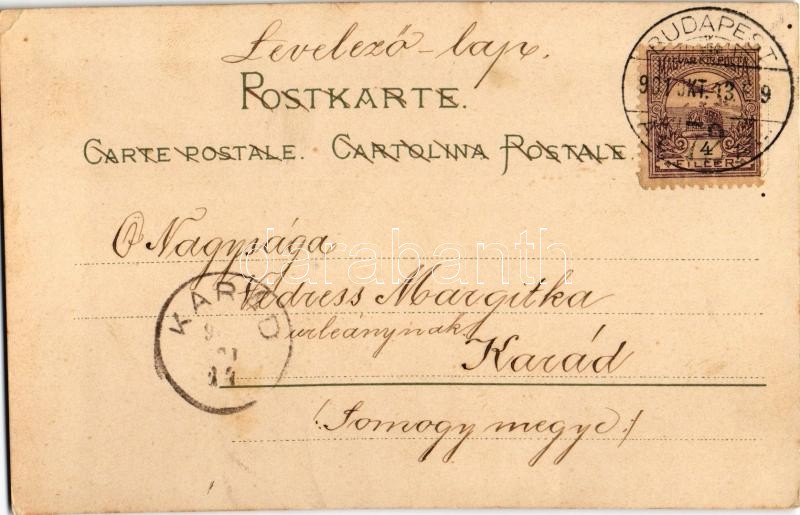 Levelező-lap.
POSTKARTE.
CARTE POSTALE. CARTOLINA POSTALE.
BUDAPEST
901 OKT. 13.
MAGYAR KIR. POSTA
4
FILLÉR
Ő Nagysága
Endress Margitka
urleánynak
Karád
(Somogy megye.)
KARÁD
darabanth